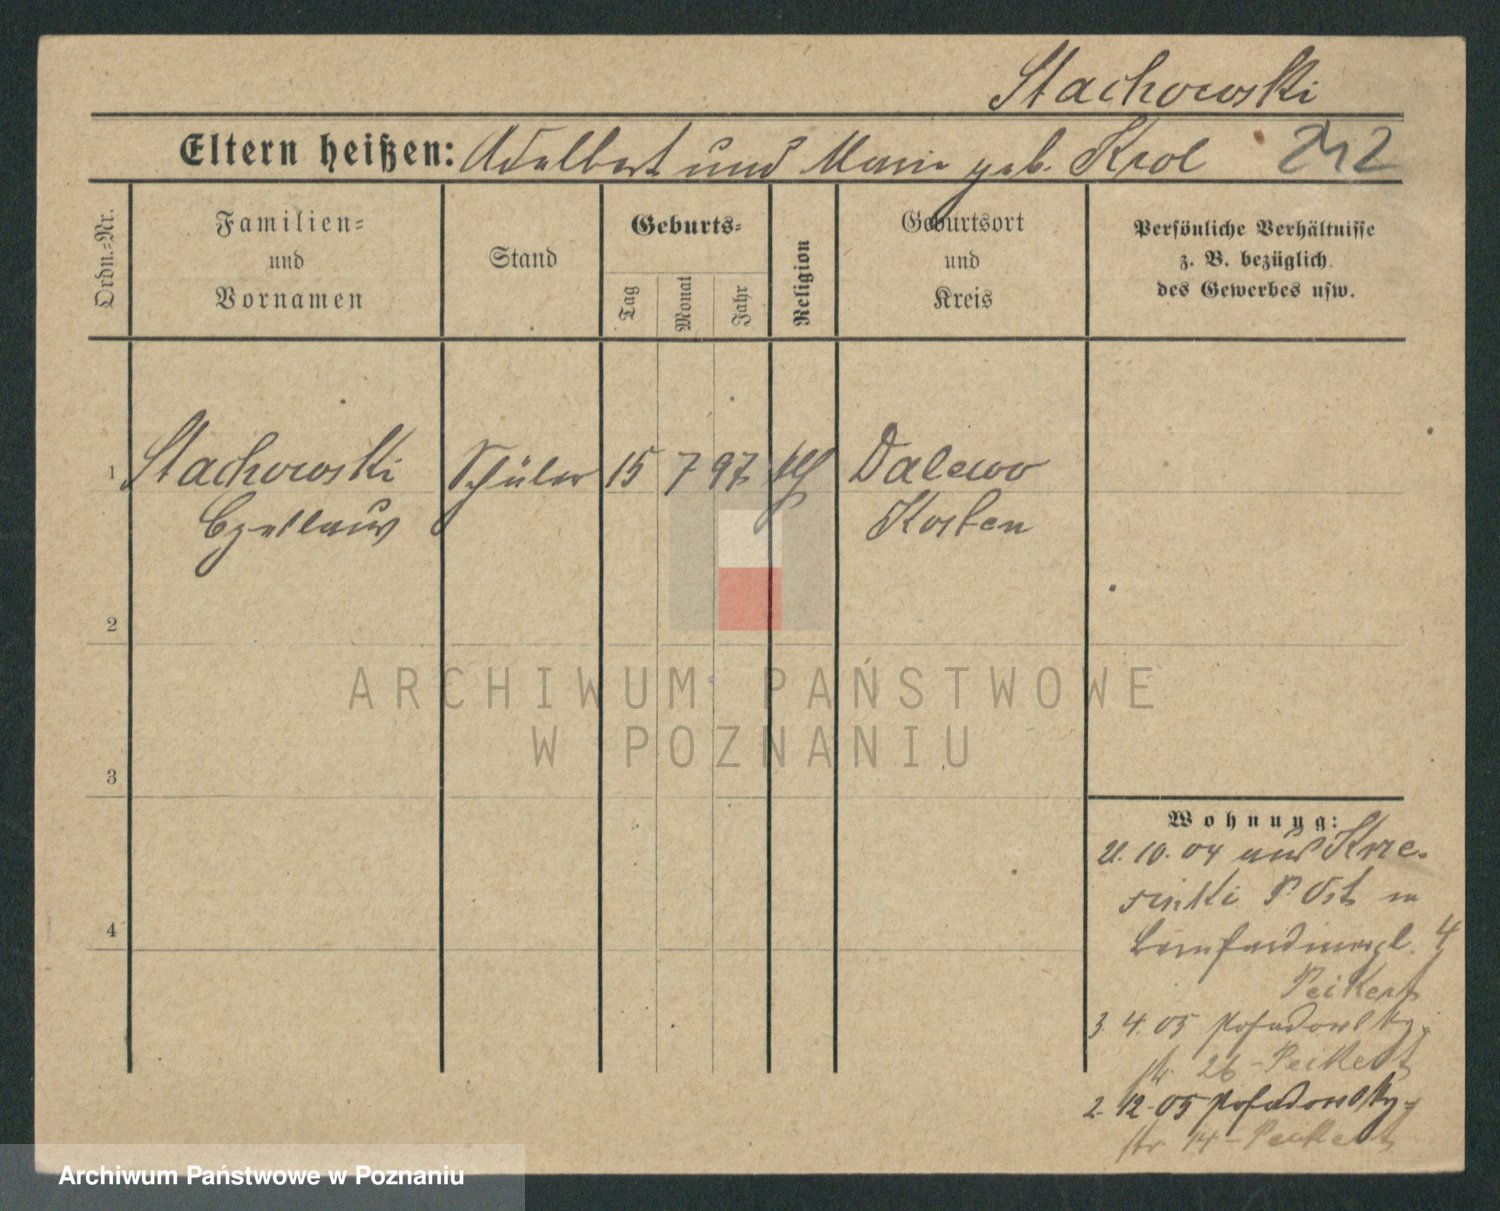 Stachowski
Eltern heißen: Adalbert und Marie geb. Krol 242
Ordn.-Nr.
Familien-
und
Vornamen
Stand
Geburts-
Tag
Monat
Jahr
Religion
Geburtsort
und
Kreis
Persönliche Verhältnisse
z. B. bezüglich
des Gewerbes usw.
1 Stachowski Schüler 15 7 97 Dalewo
Czeslaus Kosten
2
3
4
Wohnung:
10. 04 aus Krze-
sinki P. Ost in
Bernhardinerpl. 4
Peikert
3. 4. 05 Posadowsky-
str. 26 - Peikert
2. 12. 05 Posadowsky-
str. 14 - Peikert
ARCHIWUM PAŃSTWOWE
W POZNANIU
Archiwum Państwowe w Poznaniu